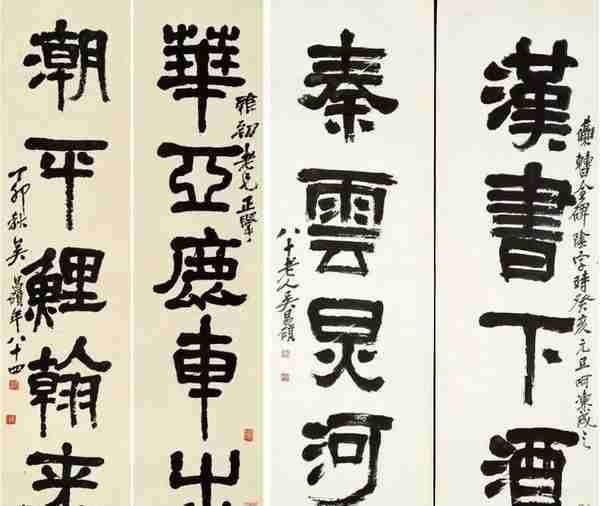 曹全碑陰字時癸亥元旦呵凍成之
漢書下酒
秦雲河
八十老人吳昌碩
雅初老兄正
華亞鹿車出
潮平鯉翰來
丁卯秋吳昌碩年八十四